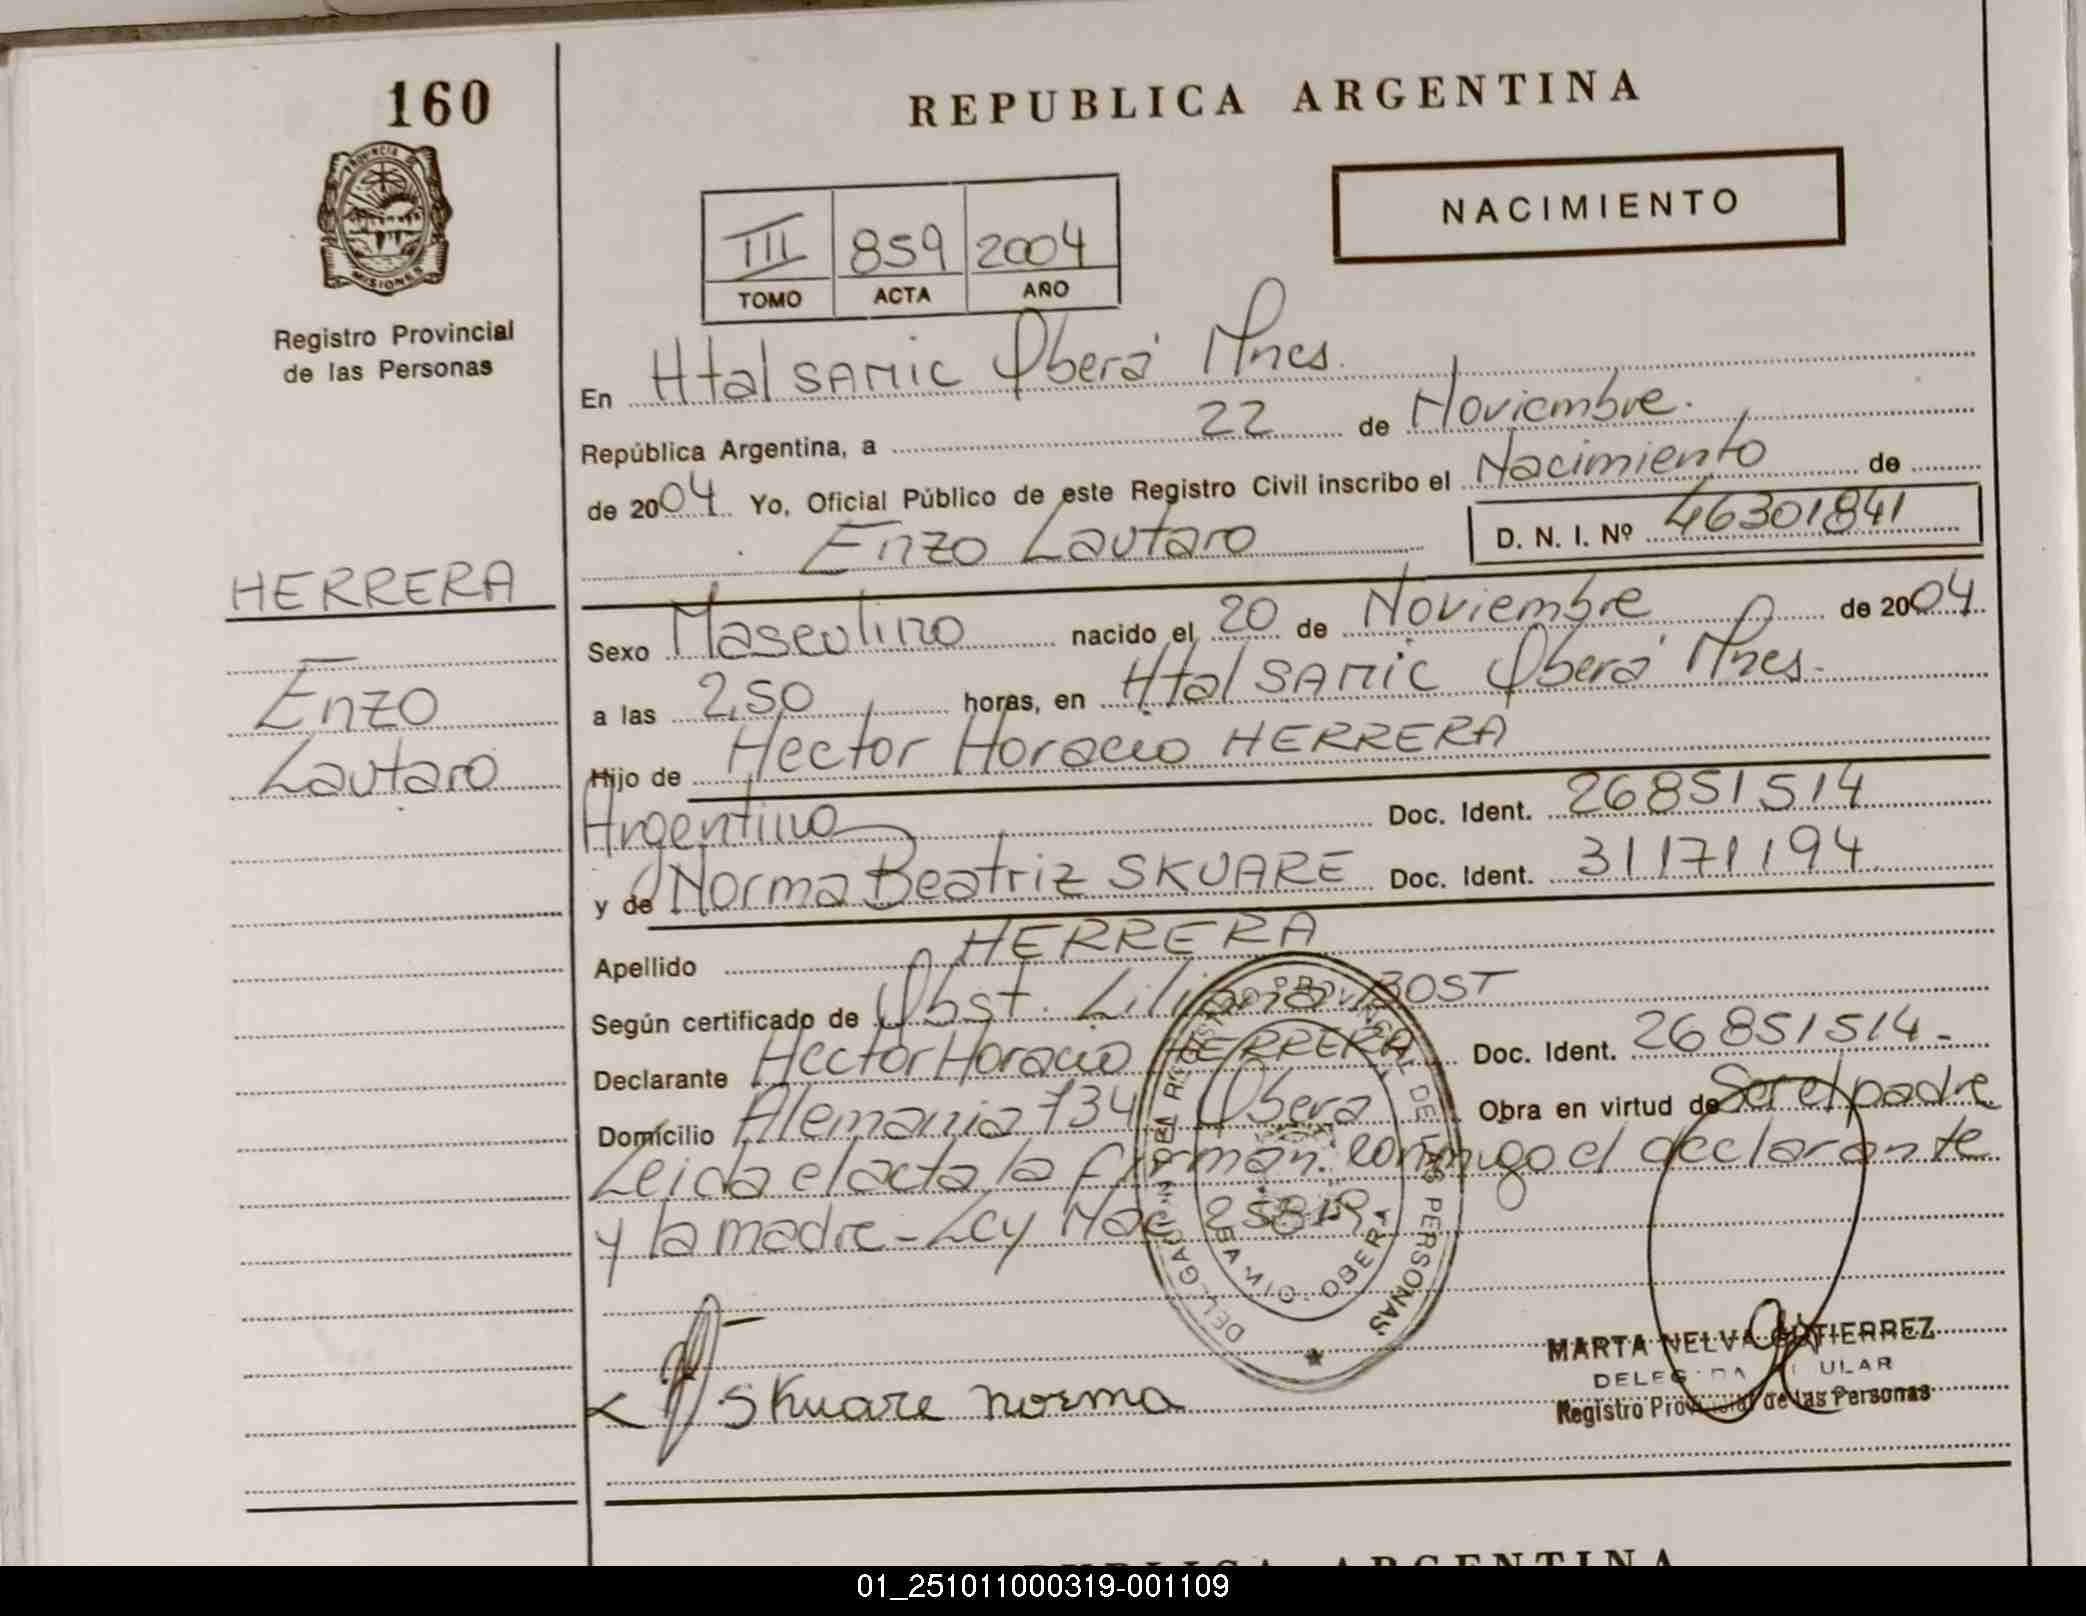 160
REPUBLICA ARGENTINA
PROVINCIA DE MISIONES
Registro Provincial
de las Personas
NACIMIENTO
III 859 2004
TOMO ACTA AÑO
En Htal SAMIC Oberá Mnes.
República Argentina, a 22 de Noviembre.
de 2004 Yo, Oficial Público de este Registro Civil inscribo el Nacimiento de
Enzo Lautaro D. N. I. Nº 46301841
HERRERA
Enzo
Lautaro
Sexo Masculino nacido el 20 de Noviembre de 2004
a las 2,50 horas, en Htal SAMIC Oberá Mnes.
Hijo de Hector Horacio HERRERA
Argentino Doc. Ident. 26851514
y de Norma Beatriz SKUARE Doc. Ident. 31171194
Apellido HERRERA
Según certificado de Obst. Liliana BOST
Declarante Hector Horacio HERRERA Doc. Ident. 26851514-
Domicilio Alemania 734 Oberá Obra en virtud de Ser el padre
Leida el acta la firman conmigo el declarante
y la madre - Ley Nac 25819
DELEGACION REGISTRO PROVINCIAL DE LAS PERSONAS
OBERA
Skuare norma
MARTA NELVA GUTIERREZ
DELEGADA TITULAR
Registro Provincial de las Personas
REPUBLICA ARGENTINA
01_251011000319-001109